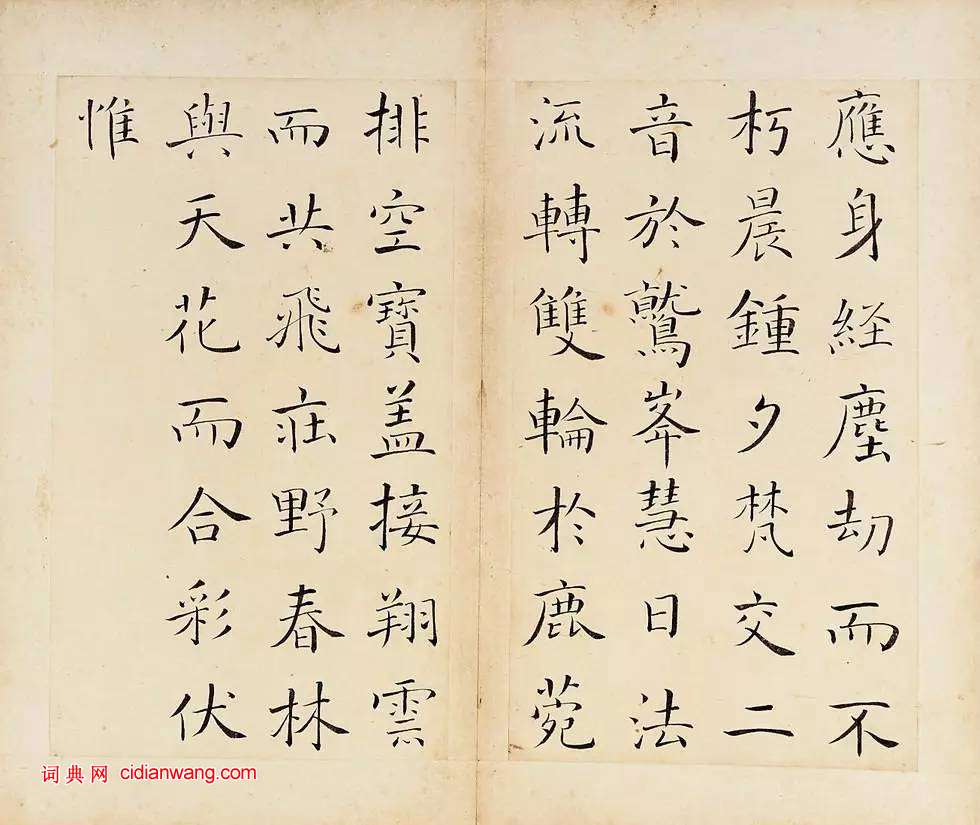 應身経塵劫而不
朽晨鍾夕梵交二
音於鷲峯慧日法
流轉雙輪於鹿菀
排空寶盖接翔雲
而共飛莊野春林
與天花而合彩伏
惟
词典网 cidianwang.com